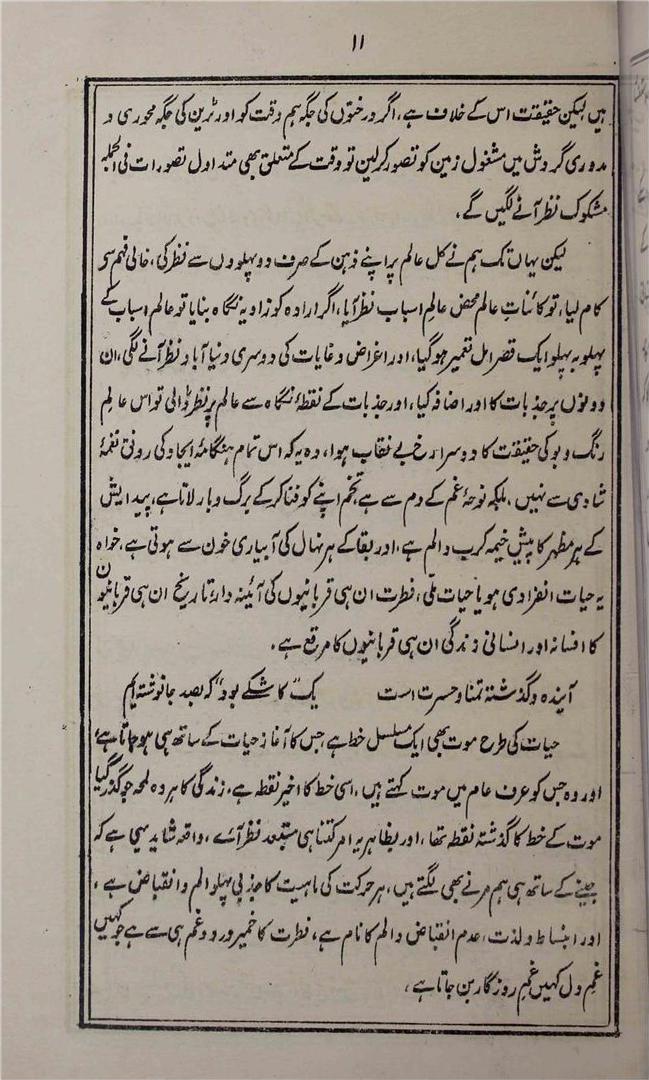 ۱۱
ہیں لیکن حقیقت اس کے خلاف ہے، اگر درختوں کی جگہ ہم وقت کو اور ٹرین کی جگہ محوری و
مدوری گردش میں مشغول زمین کو تصور کرلین تو وقت کے متعلق بھی متداول تصورات فی الجملہ
مشکوک نظر آنے لگیں گے،
لیکن یہاں تک ہم نے کل عالم پر اپنے ذہن کے صرف دو پہلووں سے نظر کی، خالی فہم سو
کام لیا، تو کائناتِ عالم محض عالمِ اسباب نظر آیا، اگر ارادہ کو زاویہ نگاہ بنایا تو عالم اسباب کے
پہلو بہ پہلو ایک قصر امل تعمیر ہوگیا، اور اغراض و غایات کی دوسری دنیا آباد نظر آنے لگی، ان
دونوں پر جذبات کا اور اضافہ کیا، اور جذبات کے نقطۂ نگاہ سے عالم پر نظر ڈالی تو اس عالمِ
رنگ و بو کی حقیقت کا دوسرا رخ بے نقاب ہوا، وہ یہ کہ اس تمام ہنگامۂ ایجاد کی رونق نغمۂ
شادی سے نہیں، بلکہ نوحۂ غم کے دم سے ہے، تخم اپنے کو فنا کر کے برگ و بار لاتا ہے، پیدایش
کے ہر مظہر کا پیش خیمہ کرب و الم ہے، اور بقا کے ہر نہال کی آبیاری خون سے ہوتی ہے، خواہ
یہ حیات انفرادی ہو یا حیات ملّی، فطرت ان ہی قربانیوں کی آئینہ دار، تاریخ ان ہی قربانیوں
کا افسانہ اور انسانی زندگی ان ہی قربانیوں کا مرقع ہے۔
آیندہ و گذشتہ تمنا و حسرت است یک ”کاشکے بود“ کہ بصد جا نوشتہ ایم
حیات کی طرح موت بھی ایک مسلسل خط ہے جس کا آغاز حیات کے ساتھ ہی ہوجاتا ہے،
اور وہ جس کو عرف عام میں موت کہتے ہیں، اسی خط کا اخیر نقطہ ہے، زندگی کا ہر وہ لمحہ جو گذر گیا
موت کے خط کا گذشتہ نقطہ تھا، اور بظاہر یہ امر کتنا ہی مستبعد نظر آئے، واقعہ شاید یہی ہے کہ
جینے کے ساتھ ہی ہم مرنے بھی لگتے ہیں، ہر حرکت کی ماہیت کا جذبی پہلو الم و انقباض ہے،
اور ابنساط و لذت، عدم انقباض و الم کا نام ہے، فطرت کا خمیر درد و غم ہی سے ہے جو کہیں
غمِ دل کہیں غمِ روزگار بن جاتا ہے،